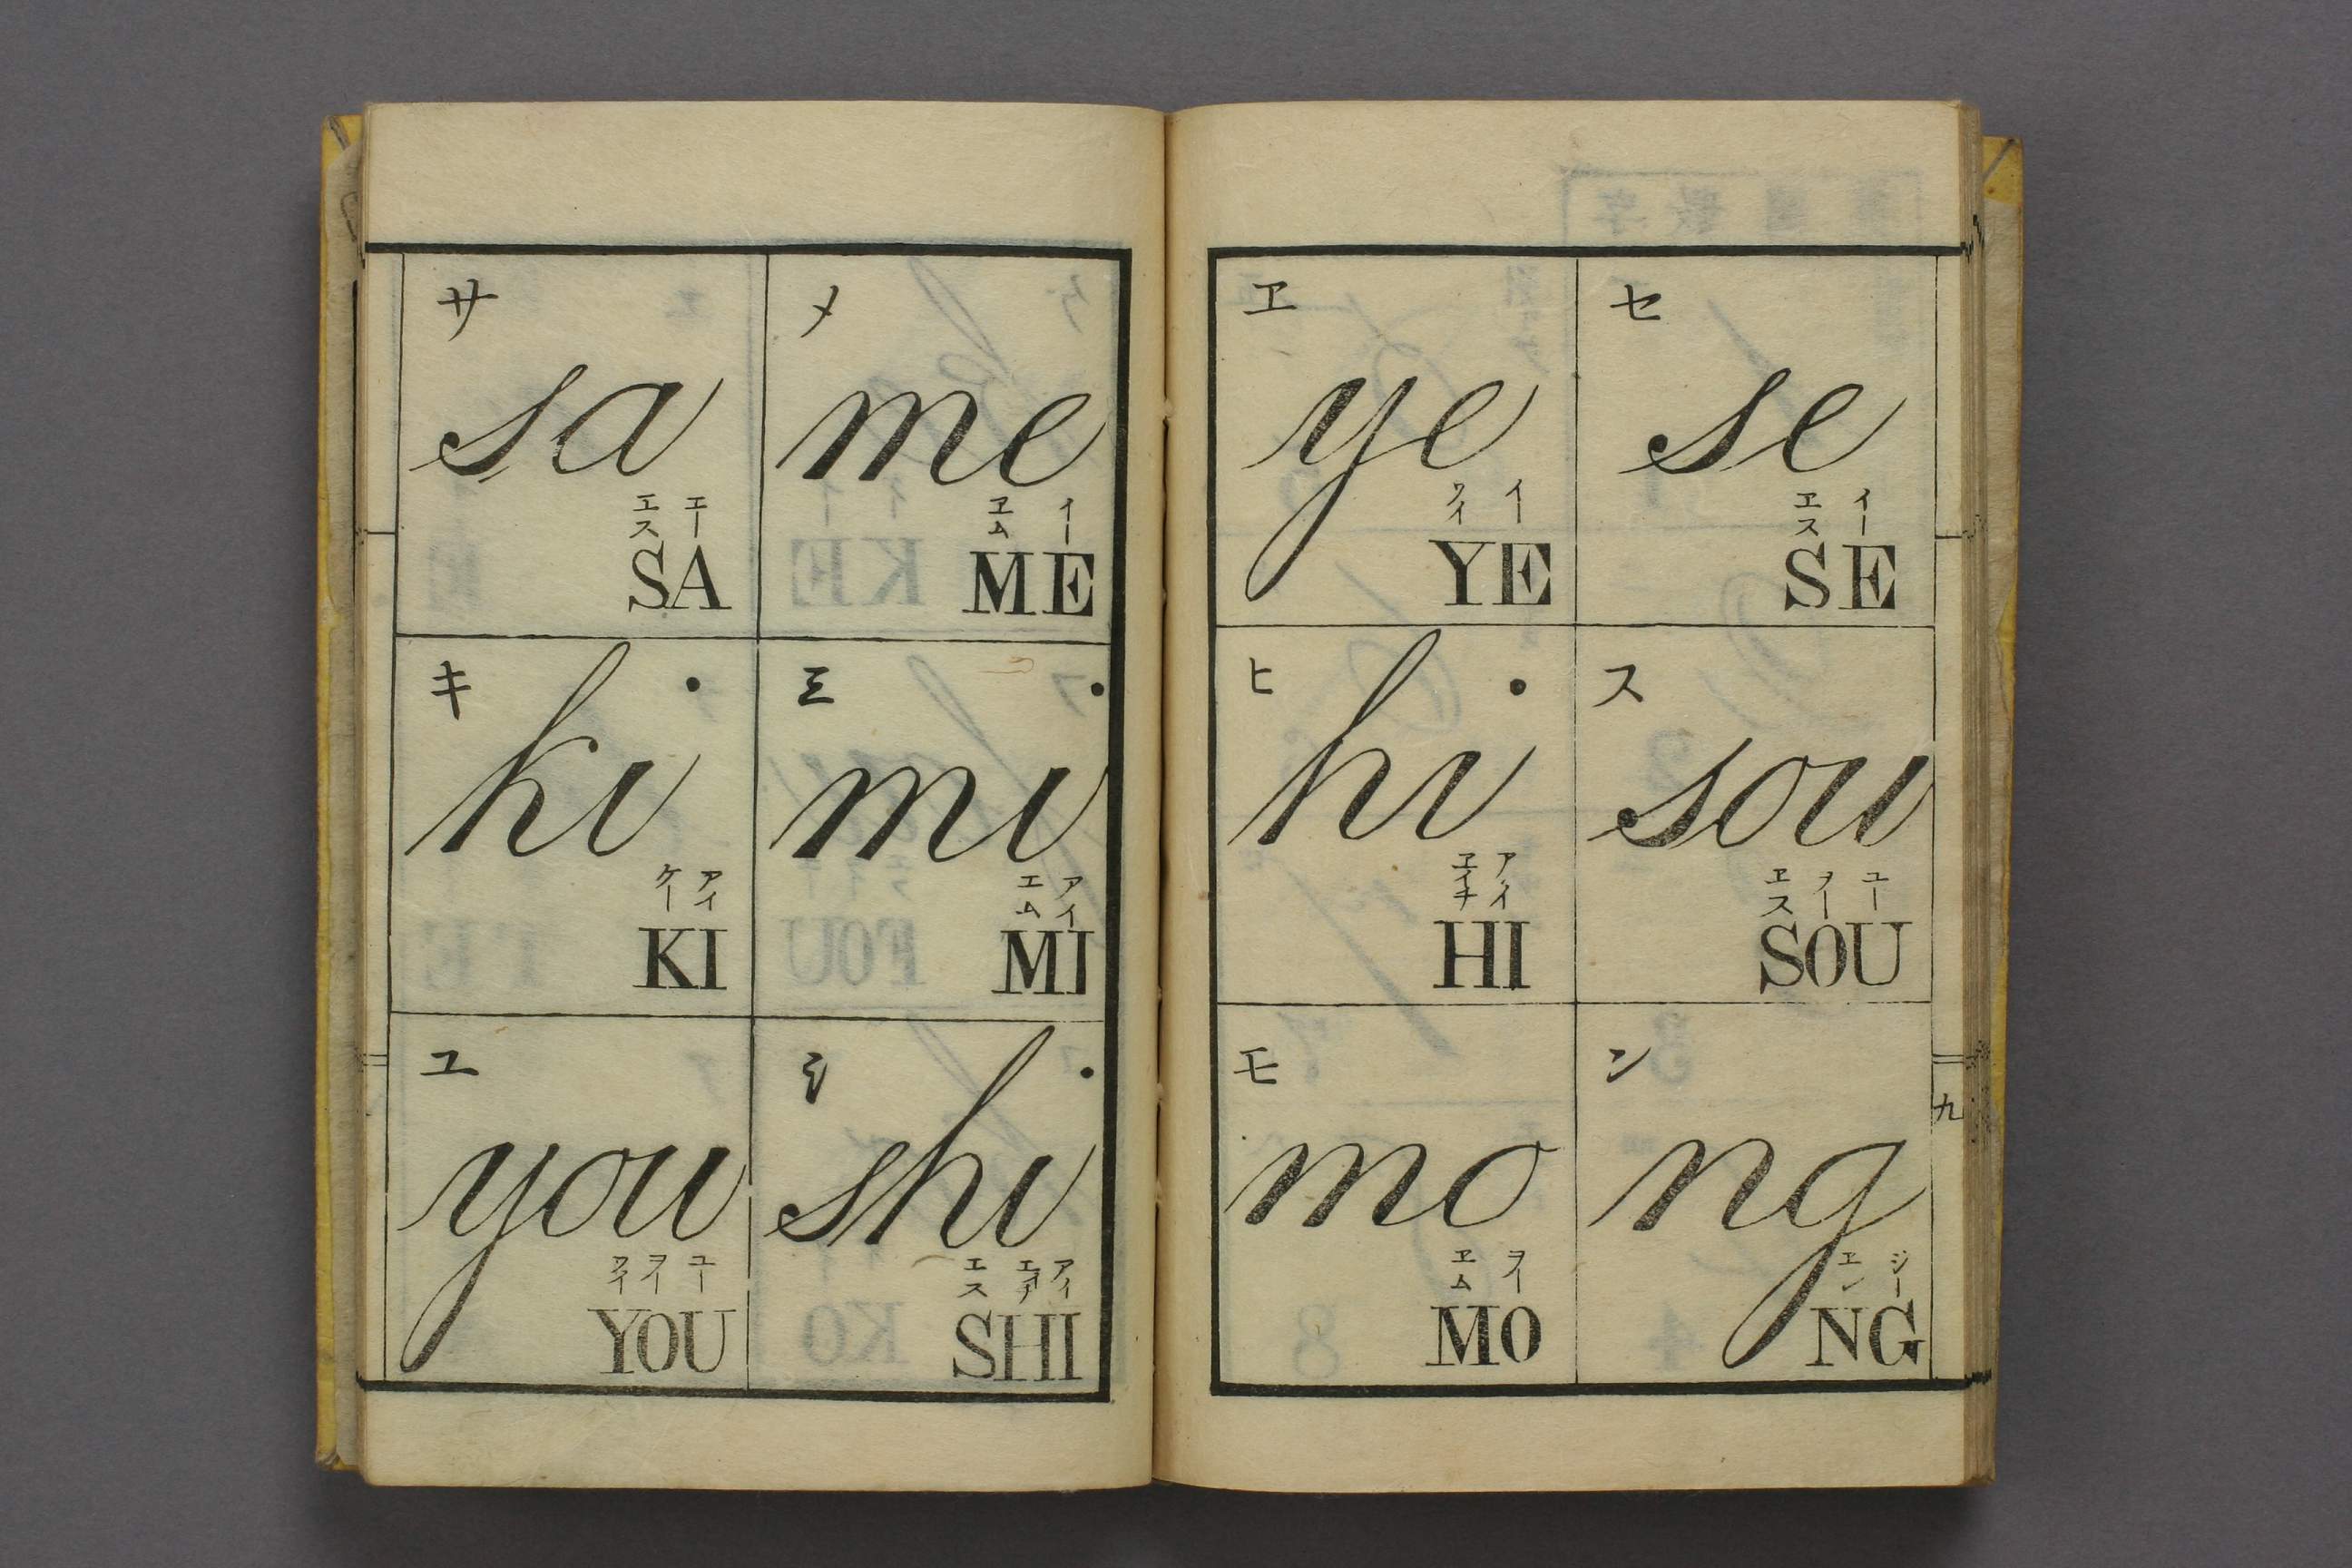 サ
sa
エス エー
SA
キ
ki
ケー アイ
KI
ユ
you
ワイ ヲイ ユー
YOU
メ
me
ヱム イー
ME
ミ
mi
エム アイ
MI
シ
shi
エス エイチ アイ
SHI
ヱ
ye
ワイ イ
YE
ヒ
hi
ヱイチ アイ
HI
モ
mo
ヱム ヲー
MO
セ
se
ヱス イー
SE
ス
sou
ヱス ヲー ユー
SOU
ン
ng
エン ジー
NG
九